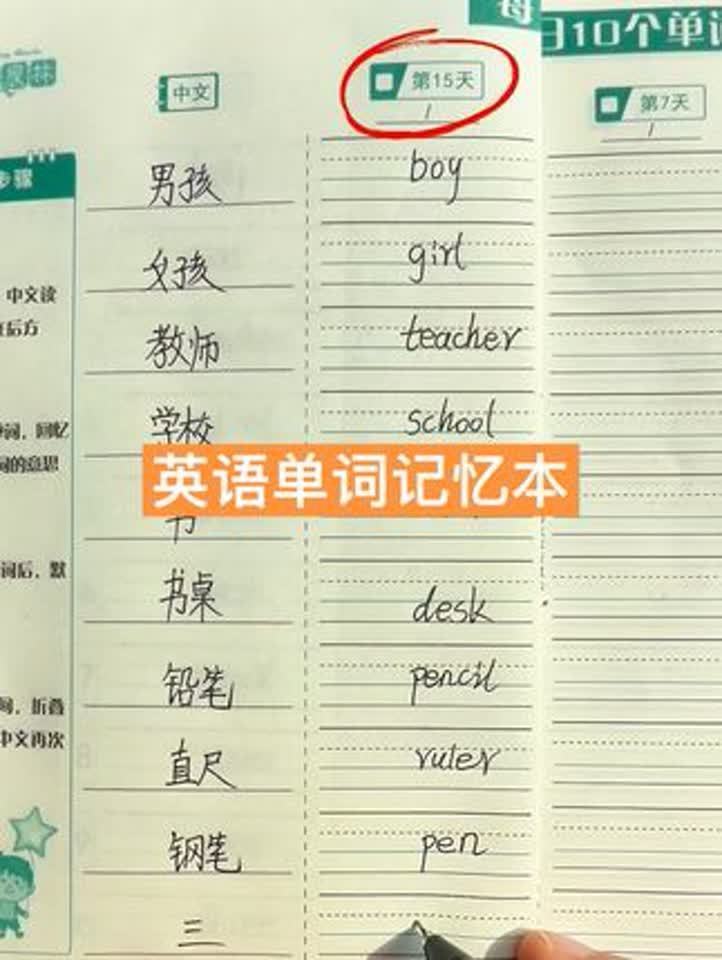 每
日10个单词
中文
第15天
第7天
步骤
男孩 boy
女孩 girl
中文读
后方
教师 teacher
学校 school
词，回忆
词的意思
英语单词记忆本
书
词后，默
书桌 desk
铅笔 pencil
词，折叠
中文再次
直尺 ruler
钢笔 pen
三